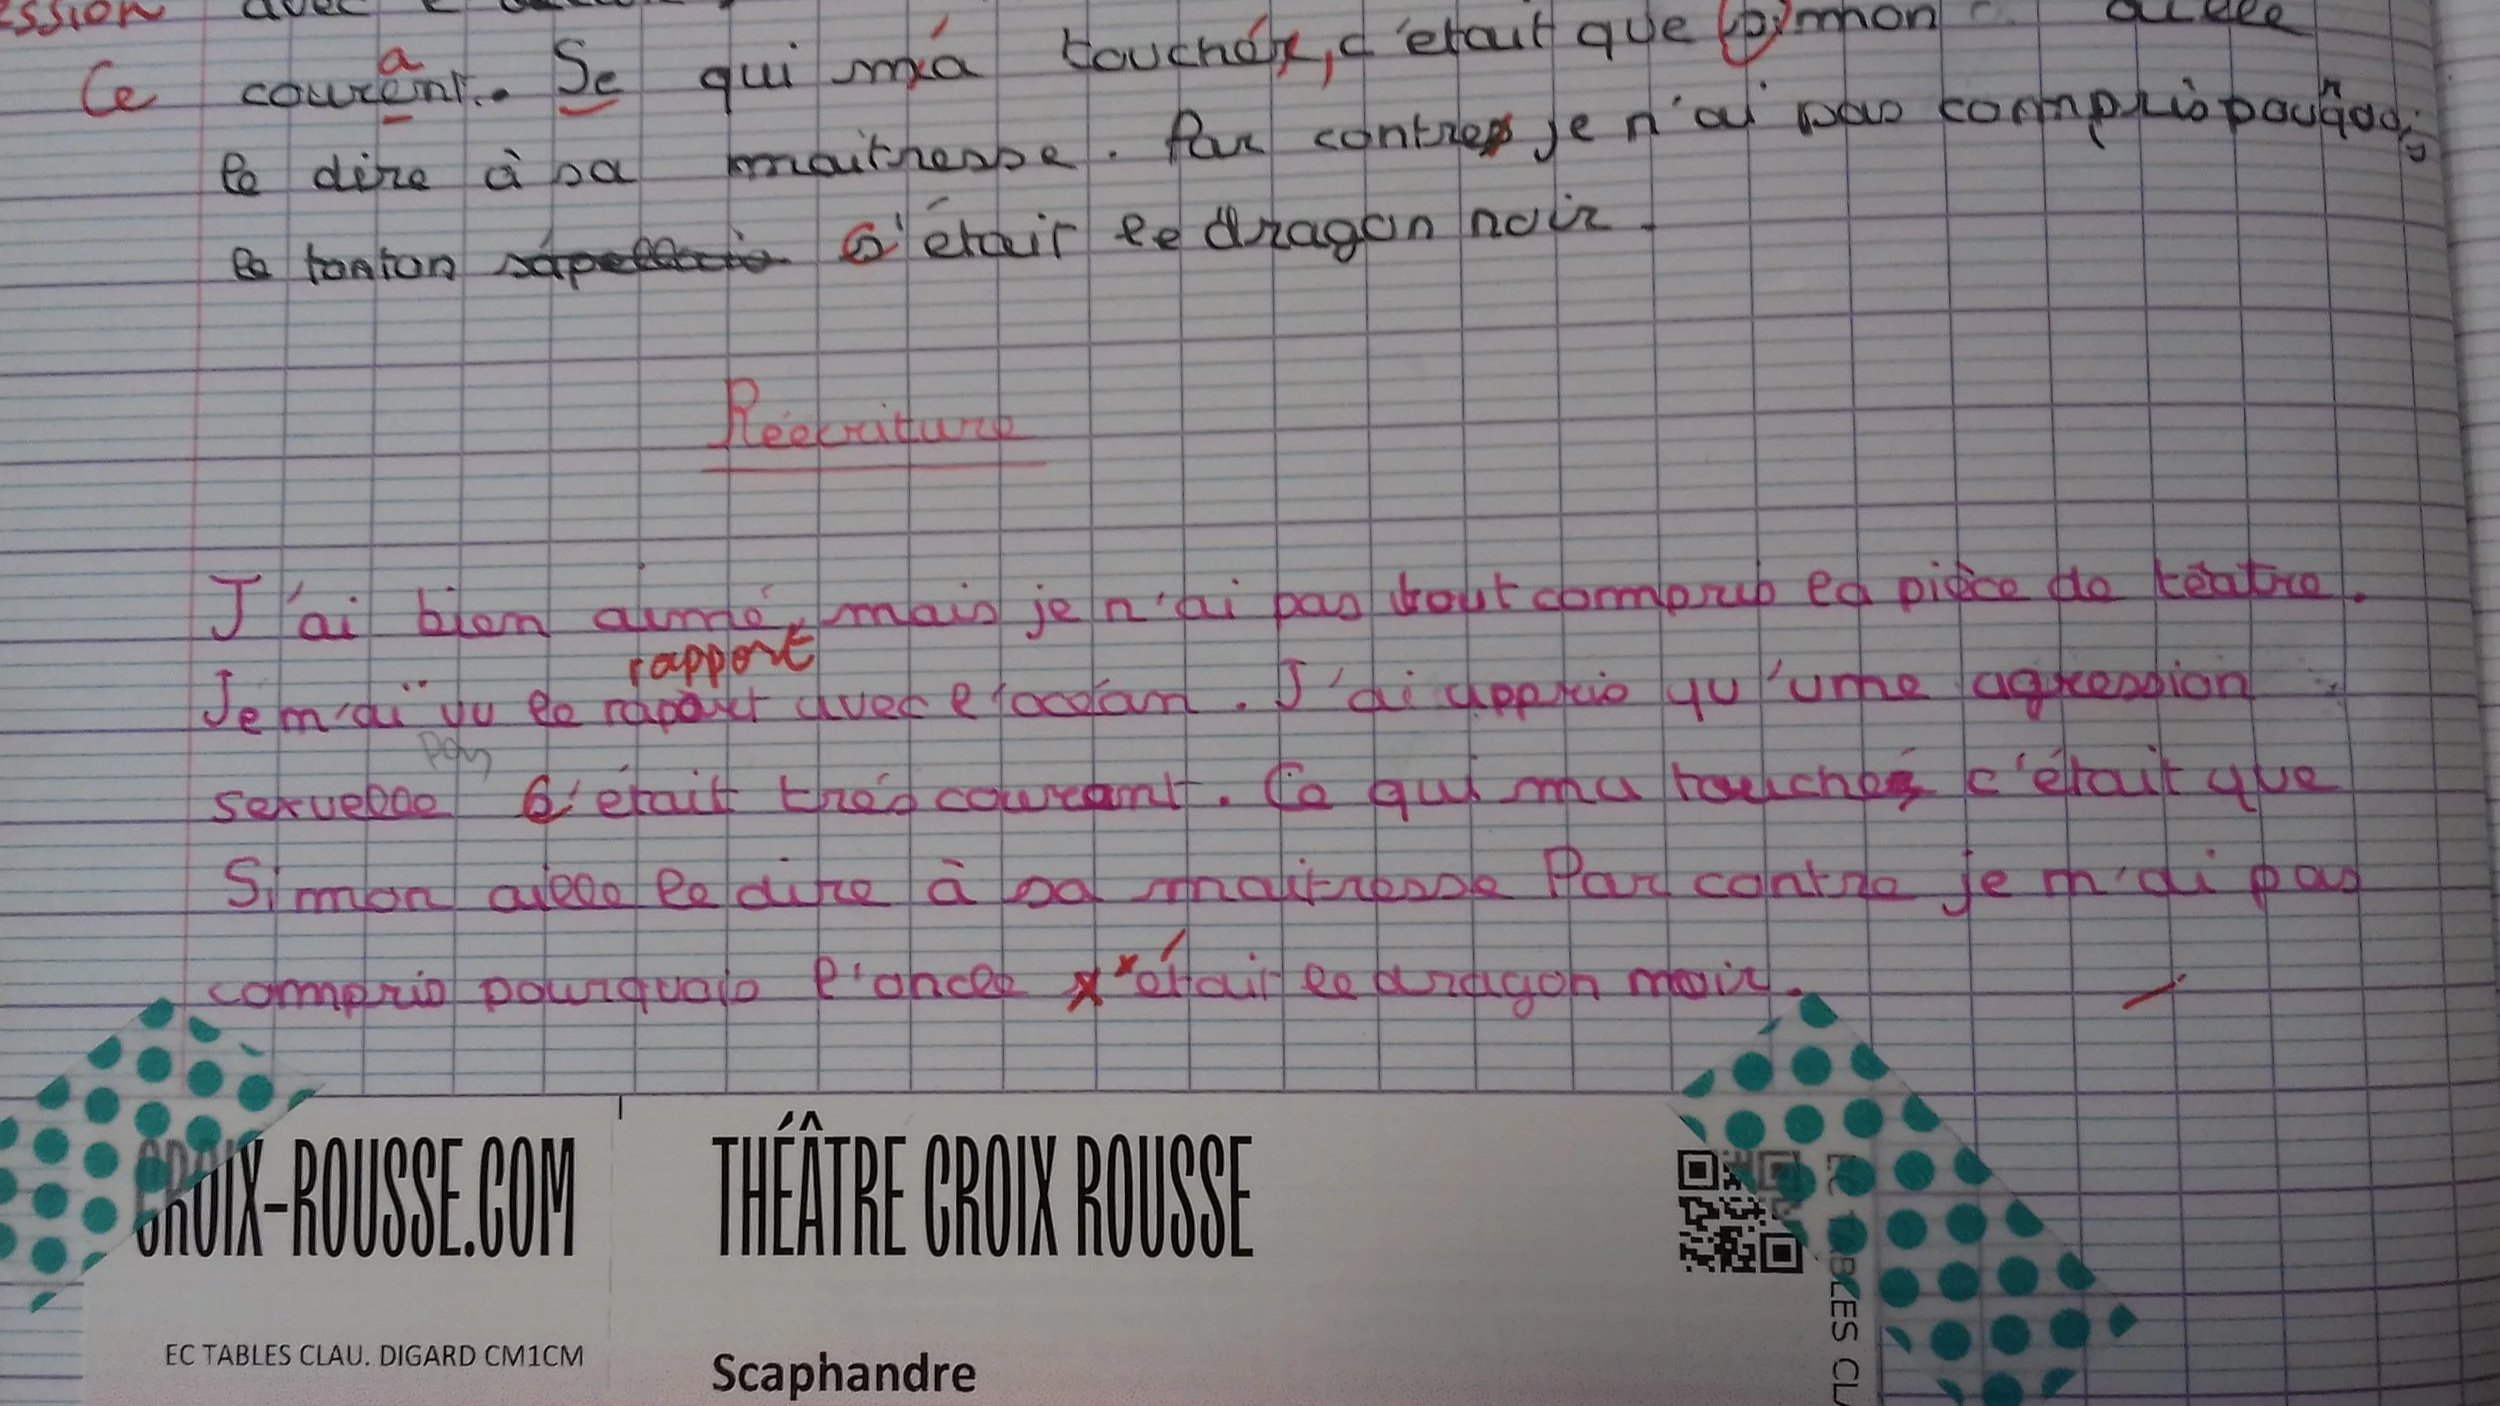 ession avec l'
a
Ce courent.. Se qui m'a touché, c'était que simon aille
le dire à sa maitresse. Par contre je n'ai pas compris pourquoi
le tonton c'étair le dragon noir.
Réécriture
J'ai bien aimé, mais je n'ai pas tout compris la pièce de téatre.
rapport
Je m'ai vu le raport avec l'océan. J'ai appris qu'une agression
pas
sexuelle c'était trés courant. Ce qui ma touché c'était que
Simon aille le dire à sa maitresse Par contre je m'ai pas
compris pourquois l'oncle étair le dragon noir.
CROIX-ROUSSE.COM
THÉÂTRE CROIX ROUSSE
EC TABLES CLAU. DIGARD CM1CM
Scaphandre
EC TABLES CL